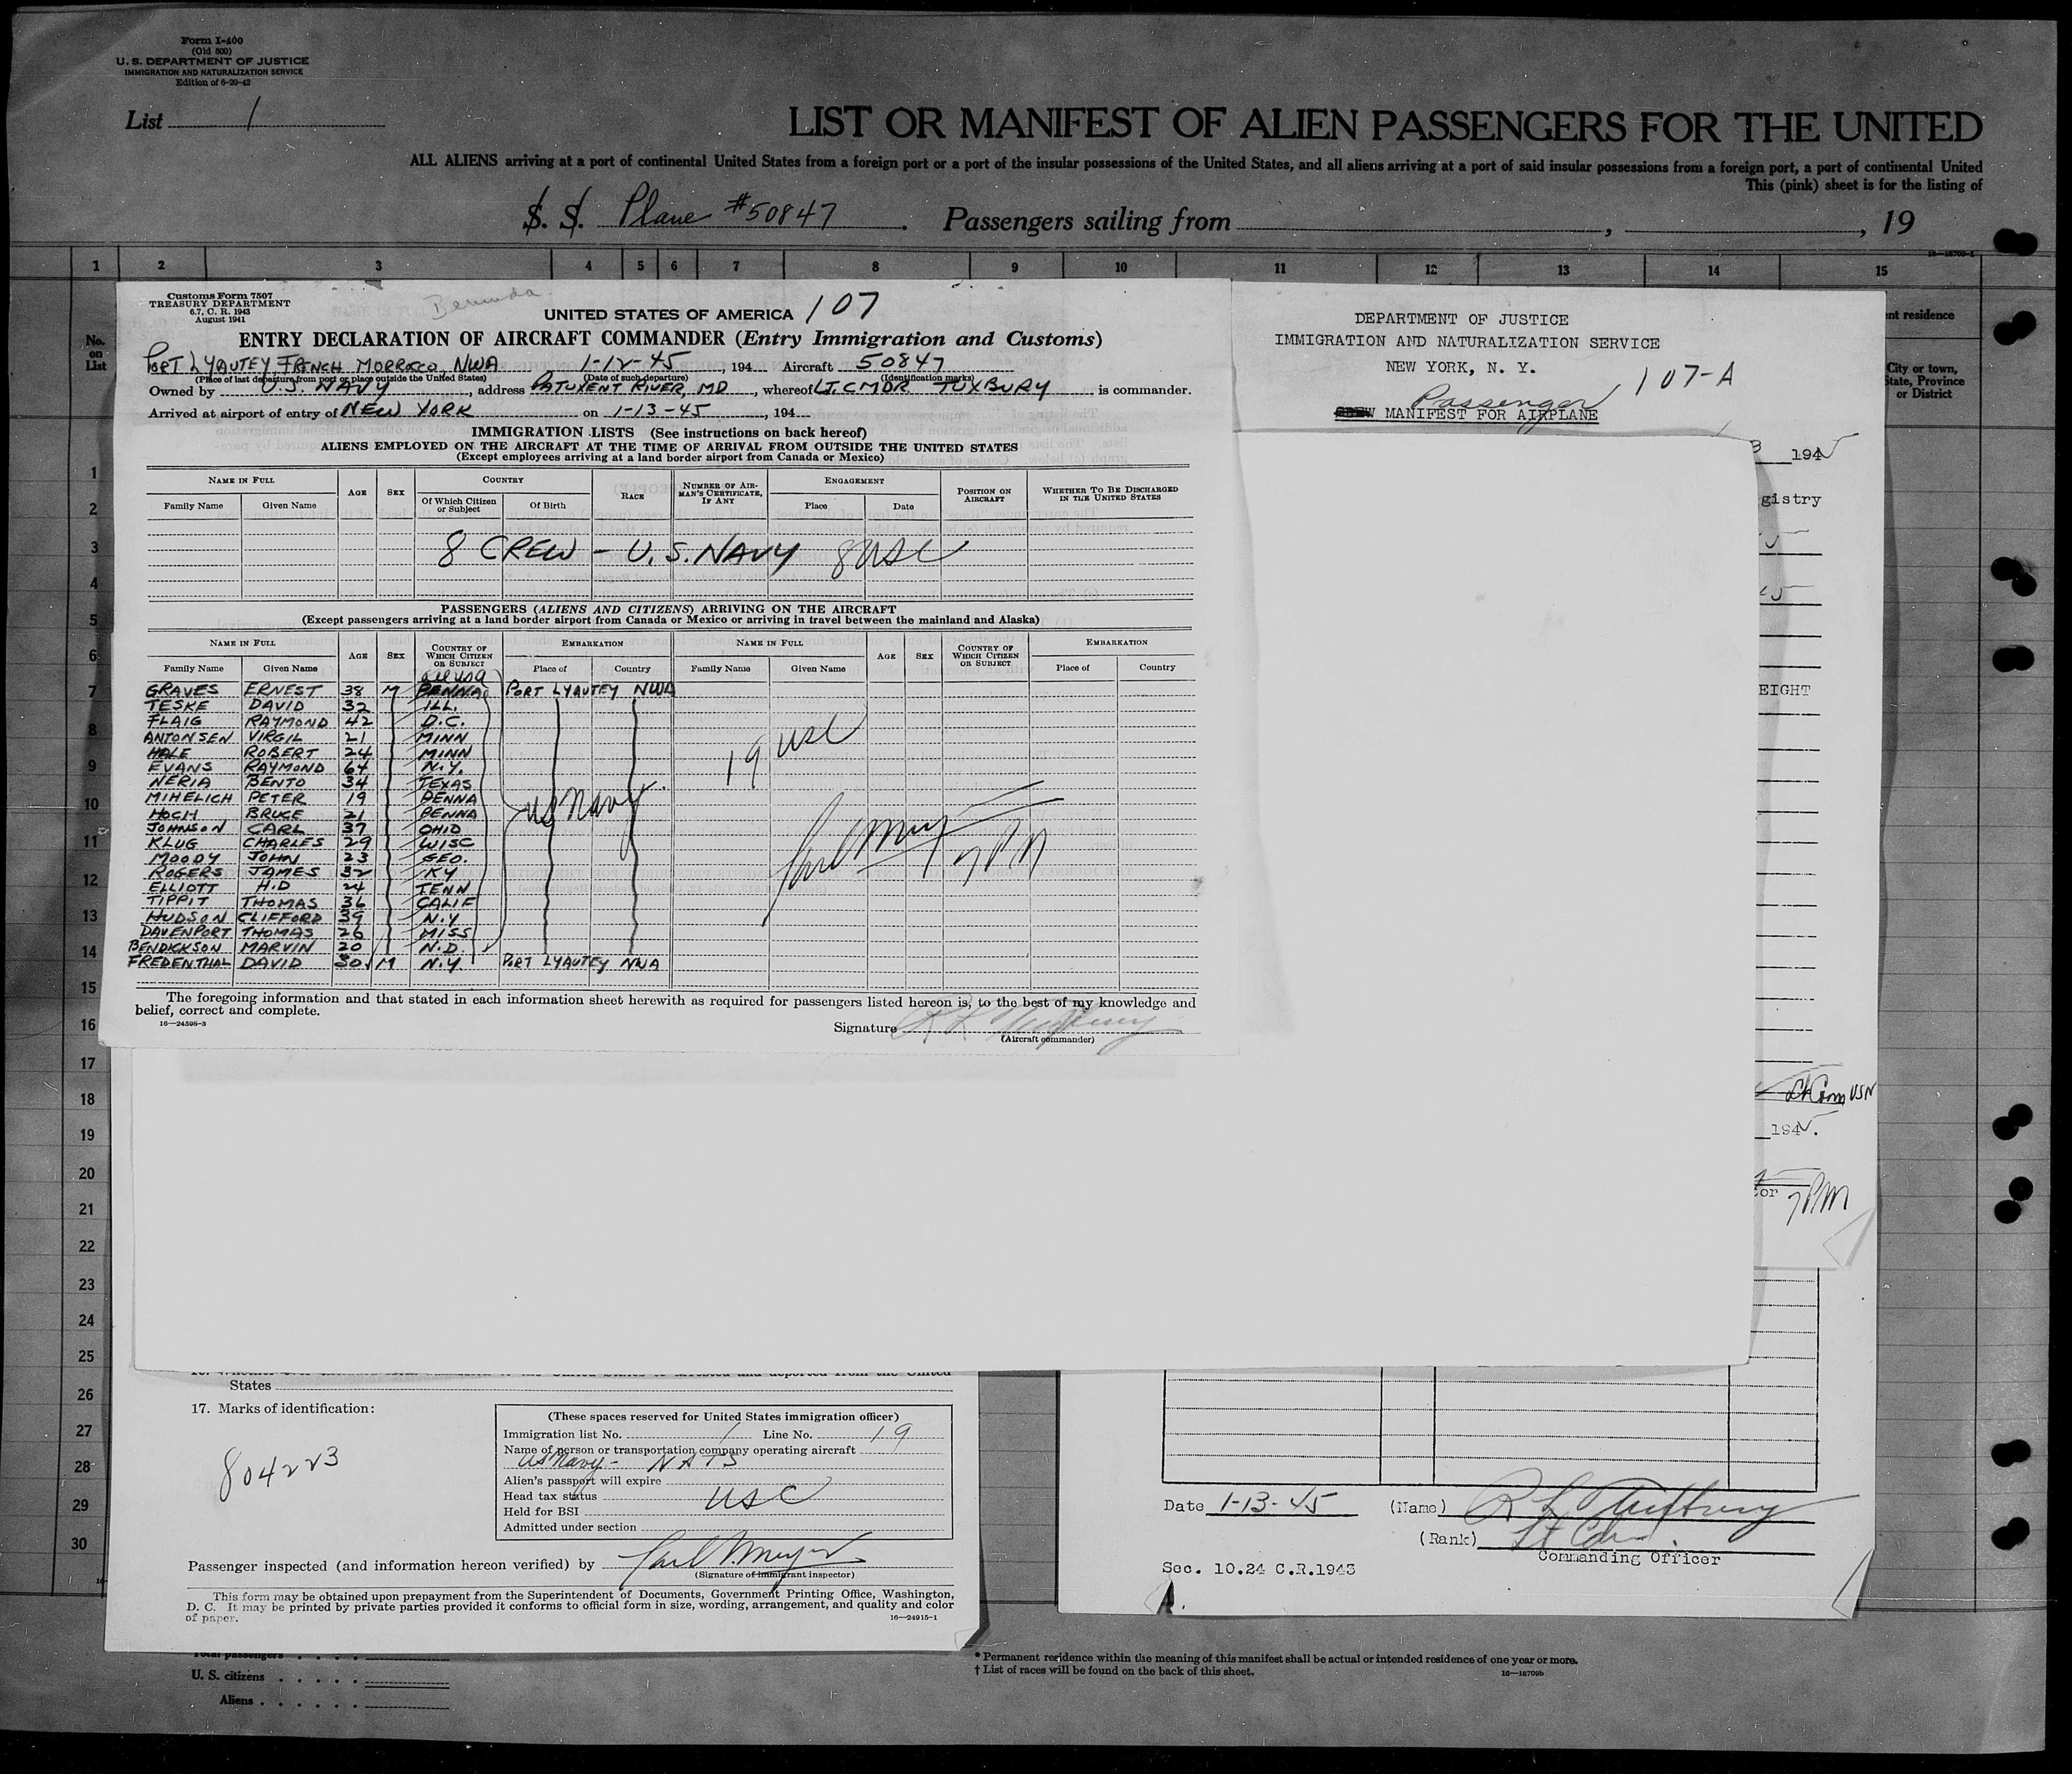 Form I-400
(Old 500)
U. S. DEPARTMENT OF JUSTICE
IMMIGRATION AND NATURALIZATION SERVICE
Edition of 6-20-42
List 1
LIST OR MANIFEST OF ALIEN PASSENGERS FOR THE UNITED
ALL ALIENS arriving at a port of continental United States from a foreign port or a port of the insular possessions of the United States, and all aliens arriving at a port of said insular possessions from a foreign port, a port of continental United
This (pink) sheet is for the listing of
S. S. Plane #50847. Passengers sailing from , , 19
1 2 3 4 5 6 7 8 9 10 11 12 13 14 15
No. on List
nt residence
City or town, State, Province or District
Customs Form 7507
TREASURY DEPARTMENT
6.7, C. R. 1943
August 1941
Bermuda
UNITED STATES OF AMERICA 107
ENTRY DECLARATION OF AIRCRAFT COMMANDER (Entry Immigration and Customs)
PORT LYAUTEY, FRNCH MORROCO, NWA 1-12-45, 194 Aircraft 50847
(Place of last departure from port or place outside the United States) (Date of such departure) (Identification marks)
Owned by U.S. NAVY, address PATUXENT RIVER, MD, whereof LT. CMDR TUXBURY is commander.
Arrived at airport of entry of NEW YORK on 1-13-45, 194
IMMIGRATION LISTS (See instructions on back hereof)
ALIENS EMPLOYED ON THE AIRCRAFT AT THE TIME OF ARRIVAL FROM OUTSIDE THE UNITED STATES
(Except employees arriving at a land border airport from Canada or Mexico)
NAME IN FULL AGE SEX COUNTRY RACE NUMBER OF AIRMAN'S CERTIFICATE, IF ANY ENGAGEMENT POSITION ON AIRCRAFT WHETHER TO BE DISCHARGED IN THE UNITED STATES
Family Name Given Name Of Which Citizen or Subject Of Birth Place Date
8 CREW - U.S. NAVY 8 USC
PASSENGERS (ALIENS AND CITIZENS) ARRIVING ON THE AIRCRAFT
(Except passengers arriving at a land border airport from Canada or Mexico or arriving in travel between the mainland and Alaska)
NAME IN FULL AGE SEX COUNTRY OF WHICH CITIZEN OR SUBJECT EMBARKATION NAME IN FULL AGE SEX COUNTRY OF WHICH CITIZEN OR SUBJECT EMBARKATION
Family Name Given Name Place of Country Family Name Given Name Place of Country
all USA
GRAVES ERNEST 38 M PENNA PORT LYAUTEY NWA
TESKE DAVID 32 ILL.
FLAIG RAYMOND 42 D.C.
ANTONSEN VIRGIL 21 MINN
HALE ROBERT 24 MINN
EVANS RAYMOND 64 N.Y.
NERIA BENTO 34 TEXAS
MIHELICH PETER 19 PENNA
HOCH BRUCE 21 PENNA
JOHNSON CARL 37 OHIO
KLUG CHARLES 29 WISC
MOODY JOHN 23 GEO.
ROGERS JAMES 32 KY
ELLIOTT H.D 24 TENN
TIPPIT THOMAS 36 CALIF
HUDSON CLIFFORD 39 N.Y.
DAVENPORT THOMAS 26 MISS
BENDICKSON MARVIN 20 N.D.
FREDENTHAL DAVID 30 M N.Y. PORT LYAUTEY NWA
US Navy
19 USC
7 PM
The foregoing information and that stated in each information sheet herewith as required for passengers listed hereon is, to the best of my knowledge and
belief, correct and complete.
16—24598-3
Signature
(Aircraft commander)
DEPARTMENT OF JUSTICE
IMMIGRATION AND NATURALIZATION SERVICE
NEW YORK, N. Y.
107-A
Passenger
CREW MANIFEST FOR AIRPLANE
3 1945
gistry
45
EIGHT
Lt Com USN
1945.
tor 7 PM
1
2
3
4
5
6
7
8
9
10
11
12
13
14
15
16
17
18
19
20
21
22
23
24
25
26
27
28
29
30
States
17. Marks of identification:
804223
(These spaces reserved for United States immigration officer)
Immigration list No. 1 Line No. 19
Name of person or transportation company operating aircraft
US Navy - NATS
Alien's passport will expire
Head tax status USC
Held for BSI
Admitted under section
Passenger inspected (and information hereon verified) by
(Signature of immigrant inspector)
This form may be obtained upon prepayment from the Superintendent of Documents, Government Printing Office, Washington,
D. C. It may be printed by private parties provided it conforms to official form in size, wording, arrangement, and quality and color
of paper.
16—24915-1
Date 1-13-45 (Name)
(Rank) Lt Cdr.
Commanding Officer
Sec. 10.24 C.R.1943
Total passengers
U. S. citizens
Aliens
* Permanent residence within the meaning of this manifest shall be actual or intended residence of one year or more.
† List of races will be found on the back of this sheet.
16—18709b